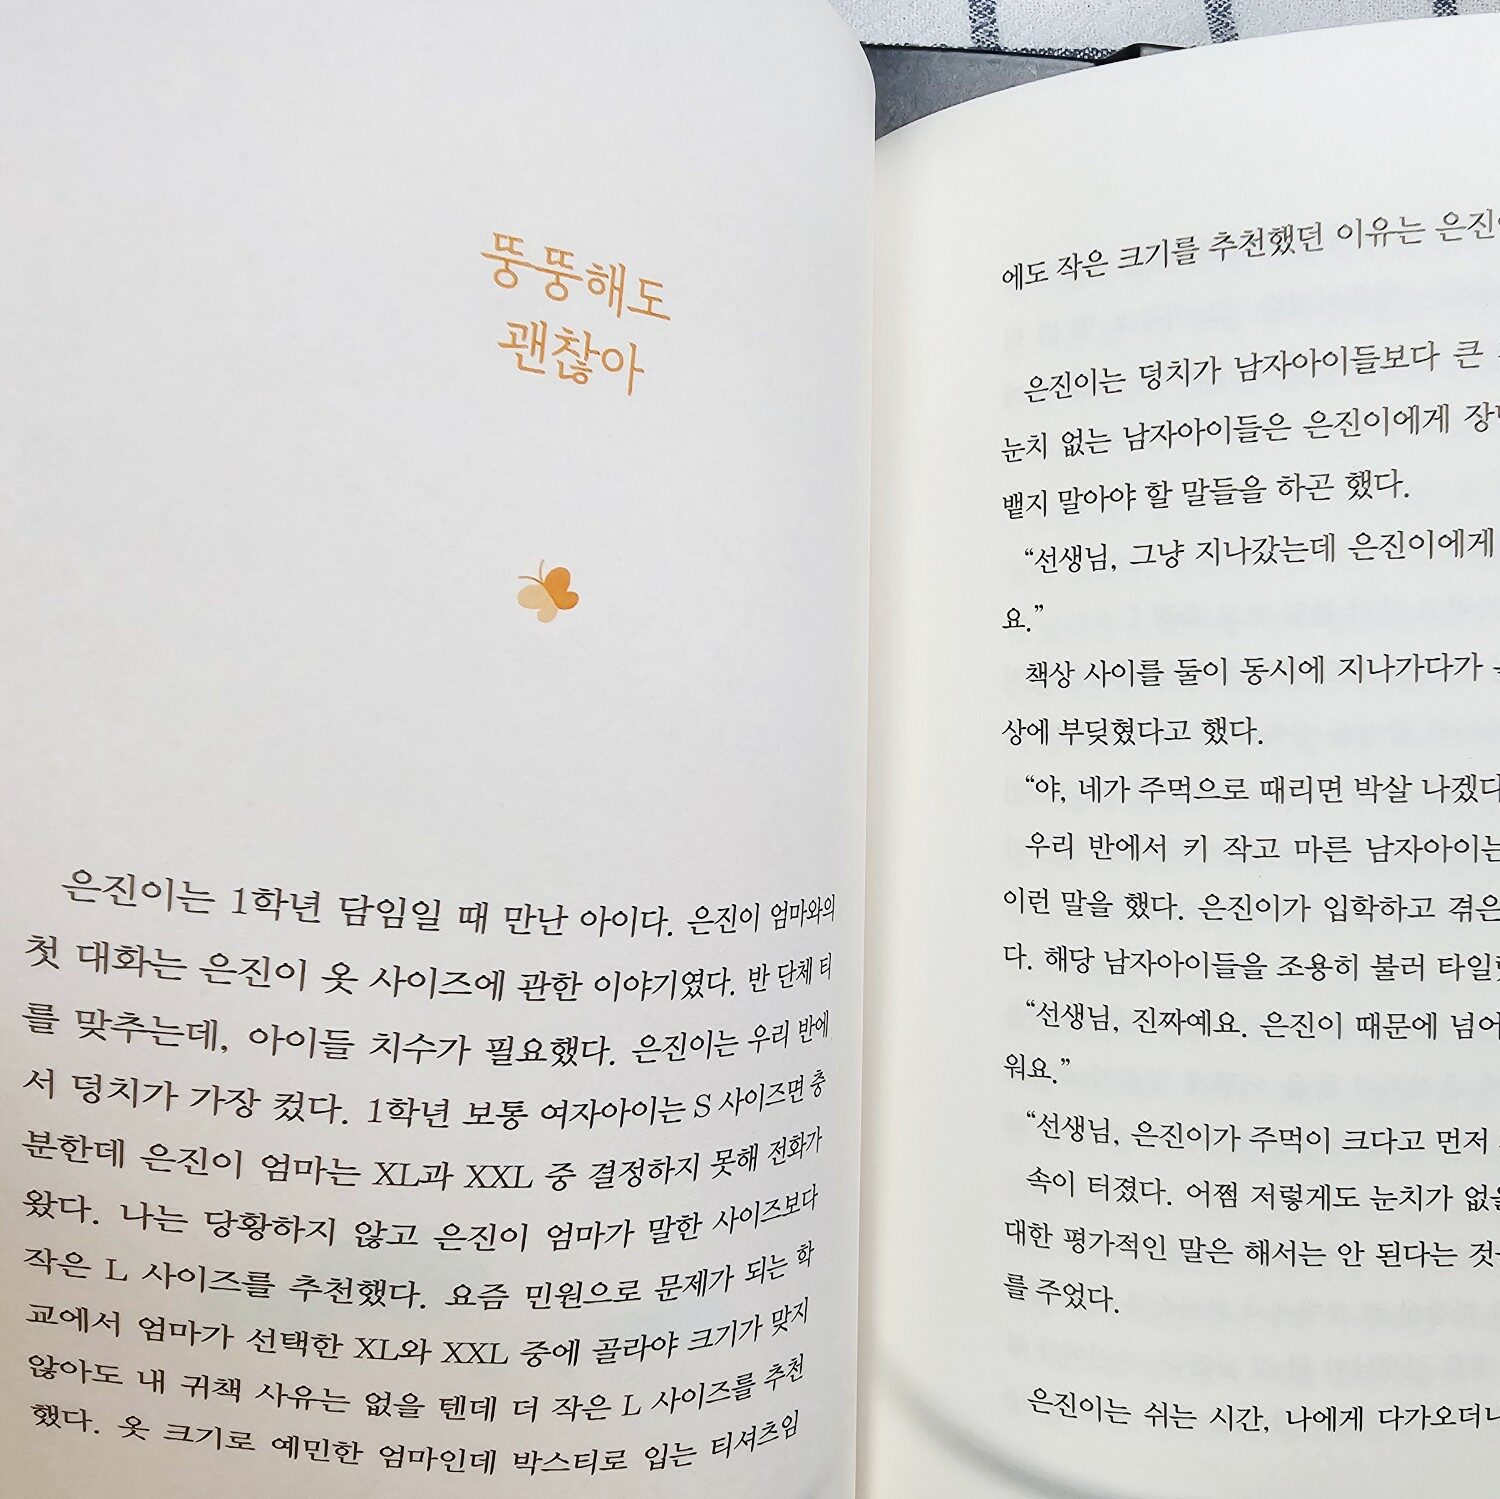 뚱뚱해도
괜찮아
은진이는 1학년 담임일 때 만난 아이다. 은진이 엄마와의
첫 대화는 은진이 옷 사이즈에 관한 이야기였다. 반 단체 티
를 맞추는데, 아이들 치수가 필요했다. 은진이는 우리 반에
서 덩치가 가장 컸다. 1학년 보통 여자아이는 S 사이즈면 충
분한데 은진이 엄마는 XL과 XXL 중 결정하지 못해 전화가
왔다. 나는 당황하지 않고 은진이 엄마가 말한 사이즈보다
작은 L 사이즈를 추천했다. 요즘 민원으로 문제가 되는 학
교에서 엄마가 선택한 XL와 XXL 중에 골라야 크기가 맞지
않아도 내 귀책 사유는 없을 텐데 더 작은 L 사이즈를 추천
했다. 옷 크기로 예민한 엄마인데 박스티로 입는 티셔츠임
에도 작은 크기를 추천했던 이유는
은진이는 덩치가 남자아이들보다 큰
눈치 없는 남자아이들은 은진이에게
뱉지 말아야 할 말들을 하곤 했다.
“선생님, 그냥 지나갔는데 은진이에게
요.”
책상 사이를 둘이 동시에 지나가다가
상에 부딪혔다고 했다.
“야, 네가 주먹으로 때리면 박살 나겠다
우리 반에서 키 작고 마른 남자아이는
이런 말을 했다. 은진이가 입학하고 겪은
다. 해당 남자아이들을 조용히 불러
“선생님, 진짜예요. 은진이 때문에 넘어
워요.”
“선생님, 은진이가 주먹이 크다고 먼저
속이 터졌다. 어쩜 저렇게도 눈치가 없을
대한 평가적인 말은 해서는 안 된다는
를 주었다.
은진이는 쉬는 시간, 나에게 다가오더니